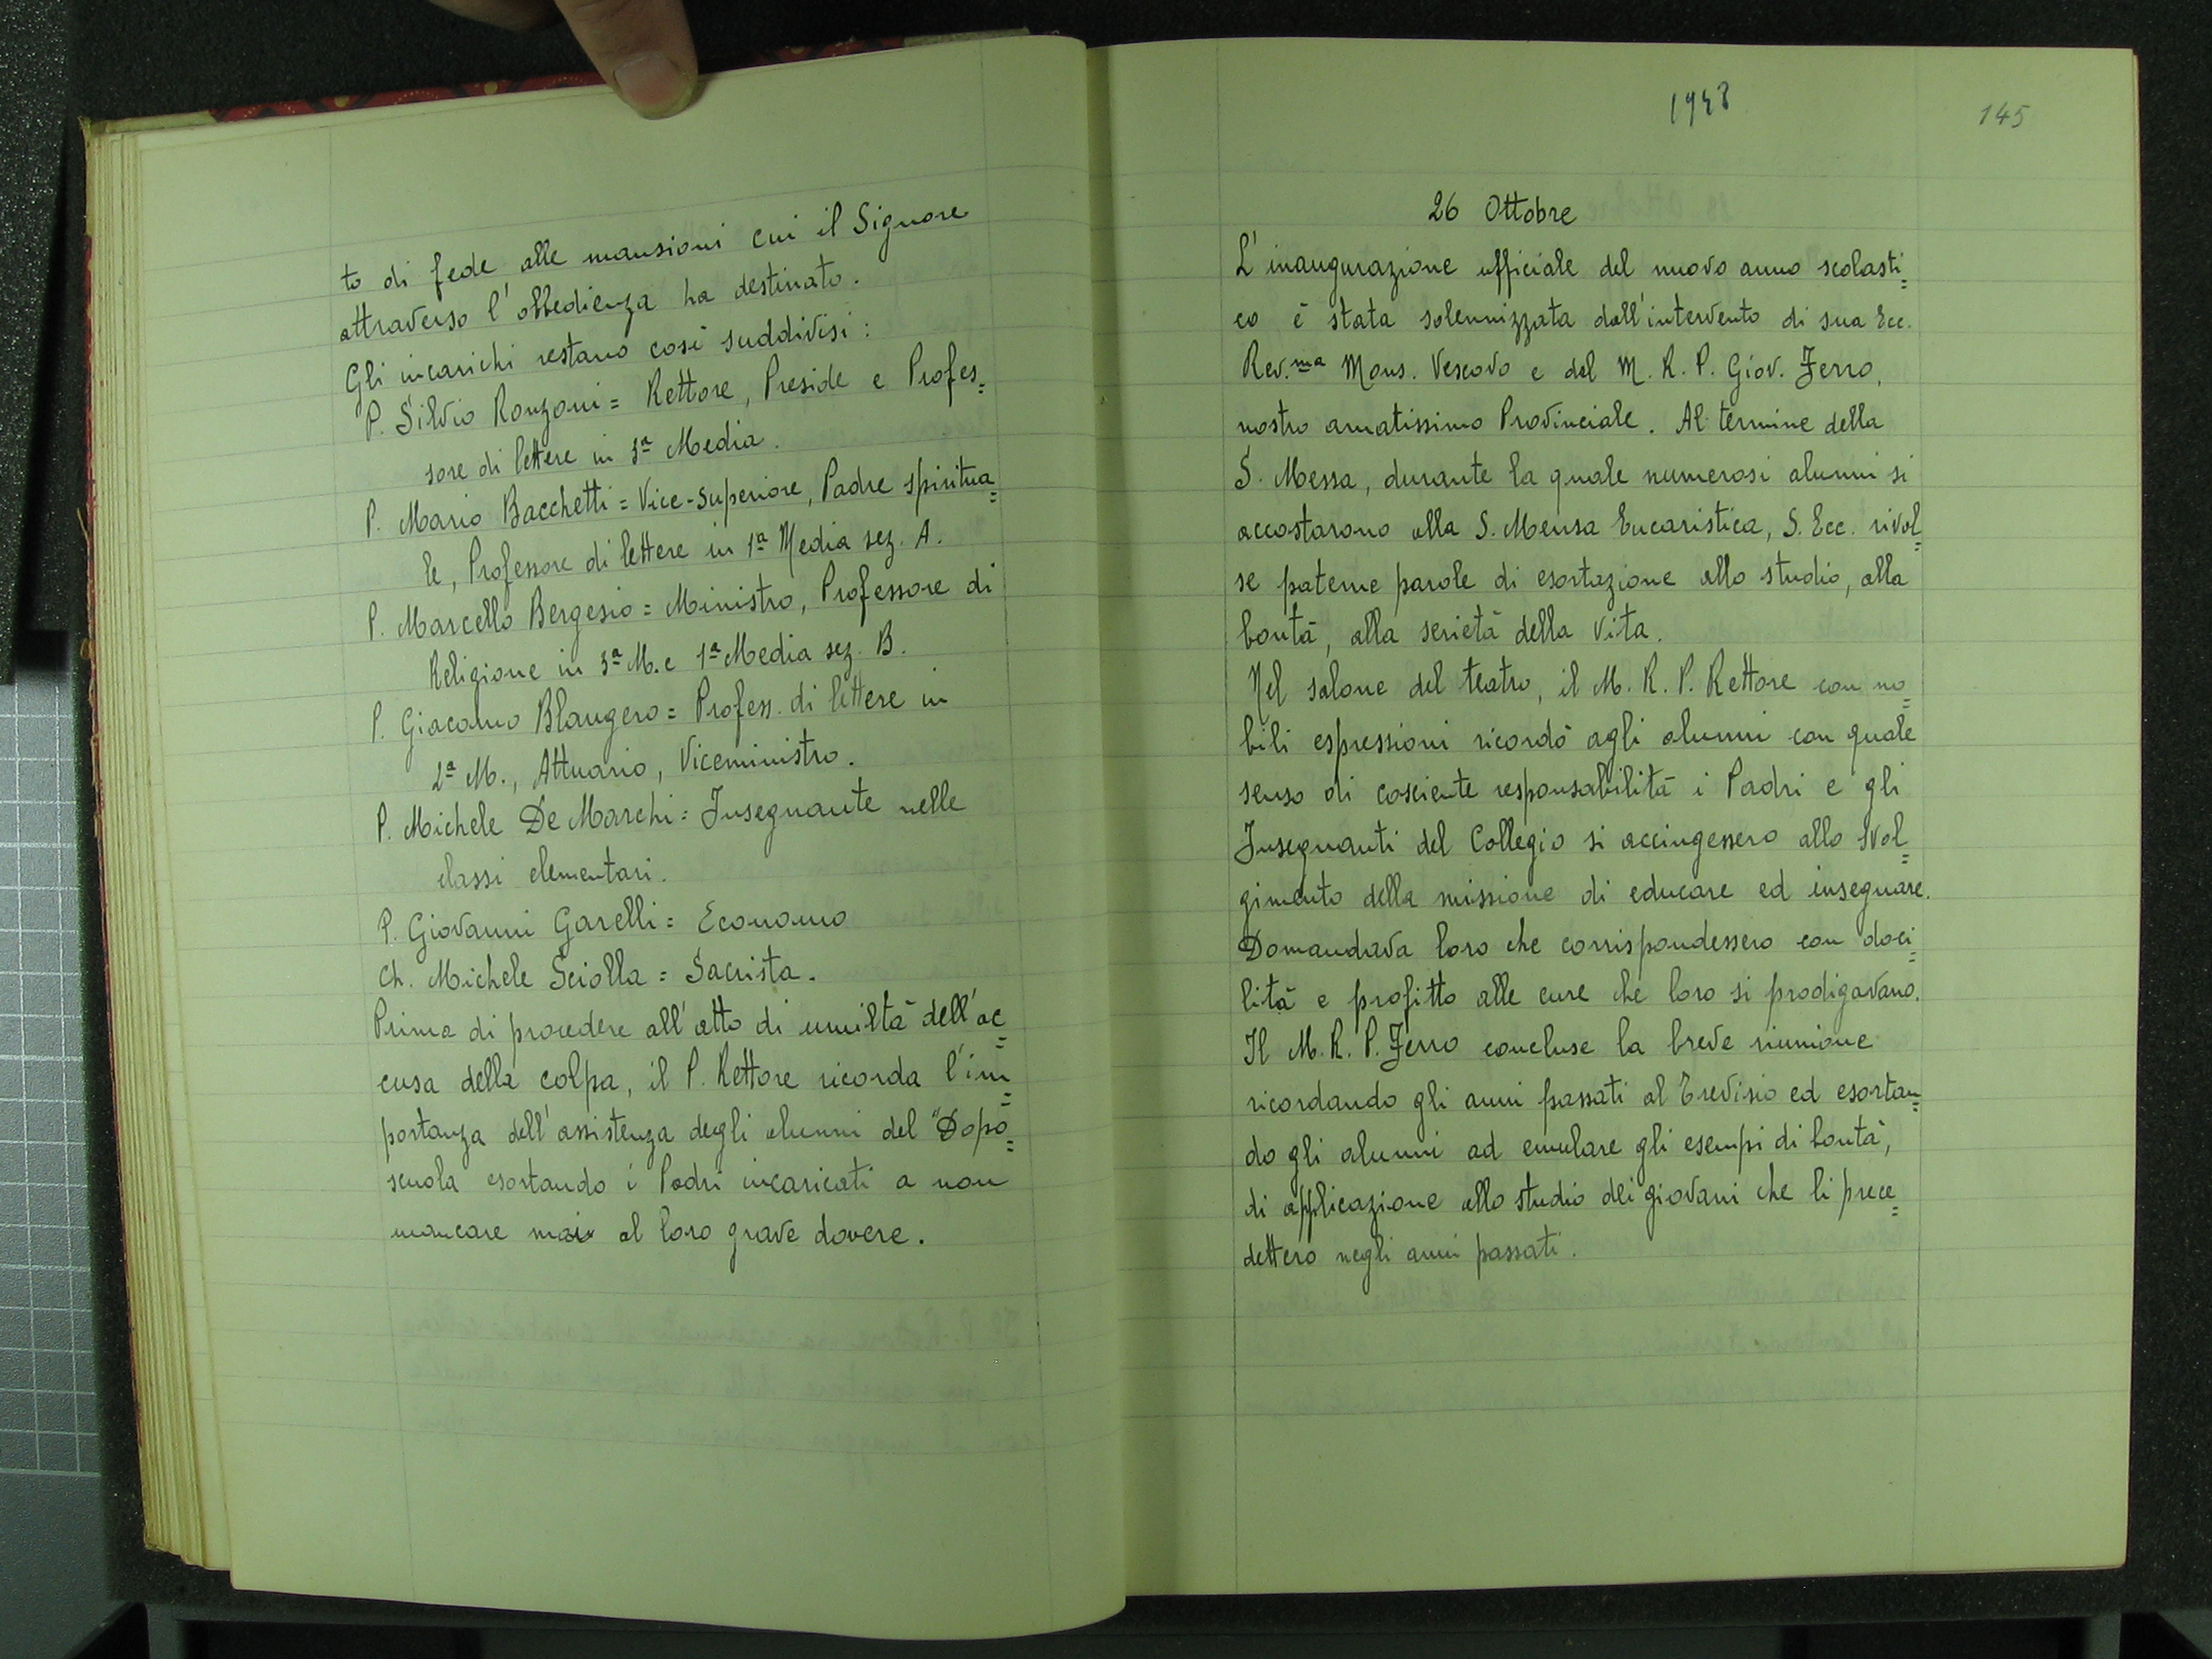 to di fede alle mansioni cui il Signore
attraverso l'obbedienza ha destinato.
Gli incarichi restano così suddivisi:
P. Silvio Ronzoni = Rettore, Preside e Profes=
sore di lettere in 3ª Media.
P. Mario Bacchetti = Vice-superiore, Padre spiritua=
le, Professore di lettere in 1ª Media sez. A.
P. Marcello Bergesio = Ministro, Professore di
Religione in 3ª M. e 1ª Media sez. B.
P. Giacomo Blangero = Profess. di lettere in
2ª M., Attuario, Viceministro.
P. Michele De Marchi = Insegnante nelle
classi elementari.
P. Giovanni Garelli = Economo
Ch. Michele Sciolla = Sacrista.
Prima di procedere all'atto di umiltà dell'ac=
cusa della colpa, il P. Rettore ricorda l'im=
portanza dell'assistenza degli alunni del "Dopo=
scuola esortando i Padri incaricati a non
mancare mai al loro grave dovere.
1948
145
26 Ottobre
L'inaugurazione ufficiale del nuovo anno scolasti=
co è stata solennizzata dall'intervento di sua Ecc.
Rev.ma Mons. Vescovo e del M. R. P. Giov. Ferro,
nostro amatissimo Provinciale. Al termine della
S. Messa, durante la quale numerosi alunni si
accostarono alla S. Mensa Eucaristica, S. Ecc. rivol=
se paterne parole di esortazione allo studio, alla
bontà, alla serietà della vita.
Nel salone del teatro, il M. R. P. Rettore con no=
bili espressioni ricordò agli alunni con quale
senso di cosciente responsabilità i Padri e gli
Insegnanti del Collegio si accingessero allo svol=
gimento della missione di educare ed insegnare.
Domandava loro che corrispondessero con doci=
lità e profitto alle cure che loro si prodigavano.
Il M. R. P. Ferro concluse la breve riunione
ricordando gli anni passati al Trevisio ed esortan=
do gli alunni ad emulare gli esempi di bontà,
di applicazione allo studio dei giovani che li prece=
dettero negli anni passati.